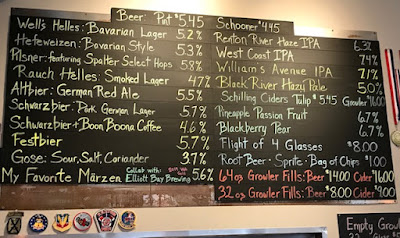 Beer: Pint $5.45 Schooner $4.45
Well's Helles: Bavarian Lager 5.2%
Hefeweizen: Bavarian Style 5.3%
Pilsner: featuring Spalter Select Hops 5.8%
Rauch Helles: Smoked Lager 4.7%
Altbier: German Red Ale 5.5%
Schwarzbier: Dark German Lager 5.7%
Schwarzbier + Boon Boona Coffee 4.6%
Festbier 5.7%
Gose: Sour, Salt, Coriander 3.7%
My Favorite Märzen Collab with: Elliott Bay Brewing 5.6%
Renton River Haze IPA 6.3%
West Coast IPA 7.4%
William's Avenue IPA 7.1%
Black River Hazy Pale 5.0%
Schilling Ciders Tulip $5.45 Growler $16.00
Pineapple Passion Fruit 6.7%
Blackberry Pear 6.7%
Flight of 4 Glasses $8.00
Root Beer · Sprite · Bag of Chips $1.00
64oz Growler Fills: Beer $14.00 Cider $16.00
32oz Growler Fills: Beer $8.00 Cider $9.00
Empty Growl